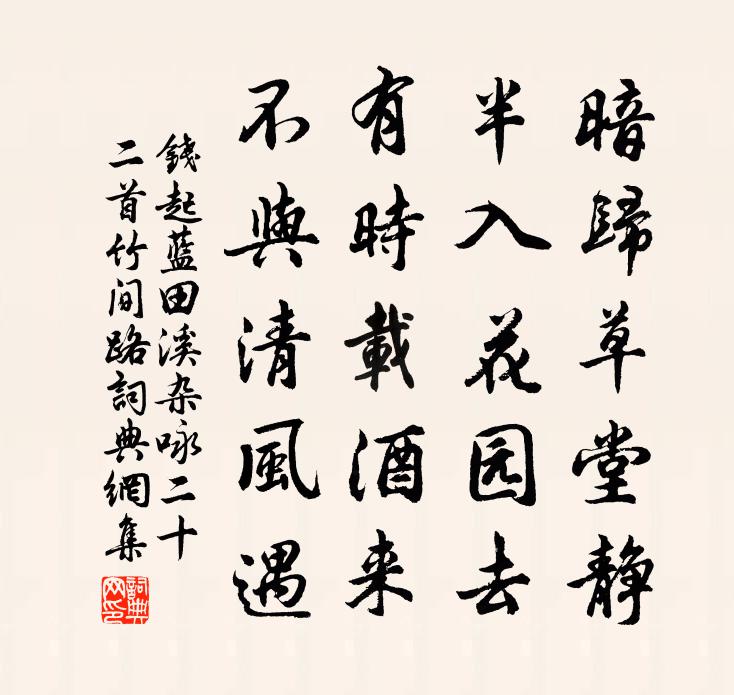 暗歸草堂静
半入花园去
有時載酒来
不與清風遇
錢起藍田溪杂咏二十
二首竹间路詞典網集
詞典
网印